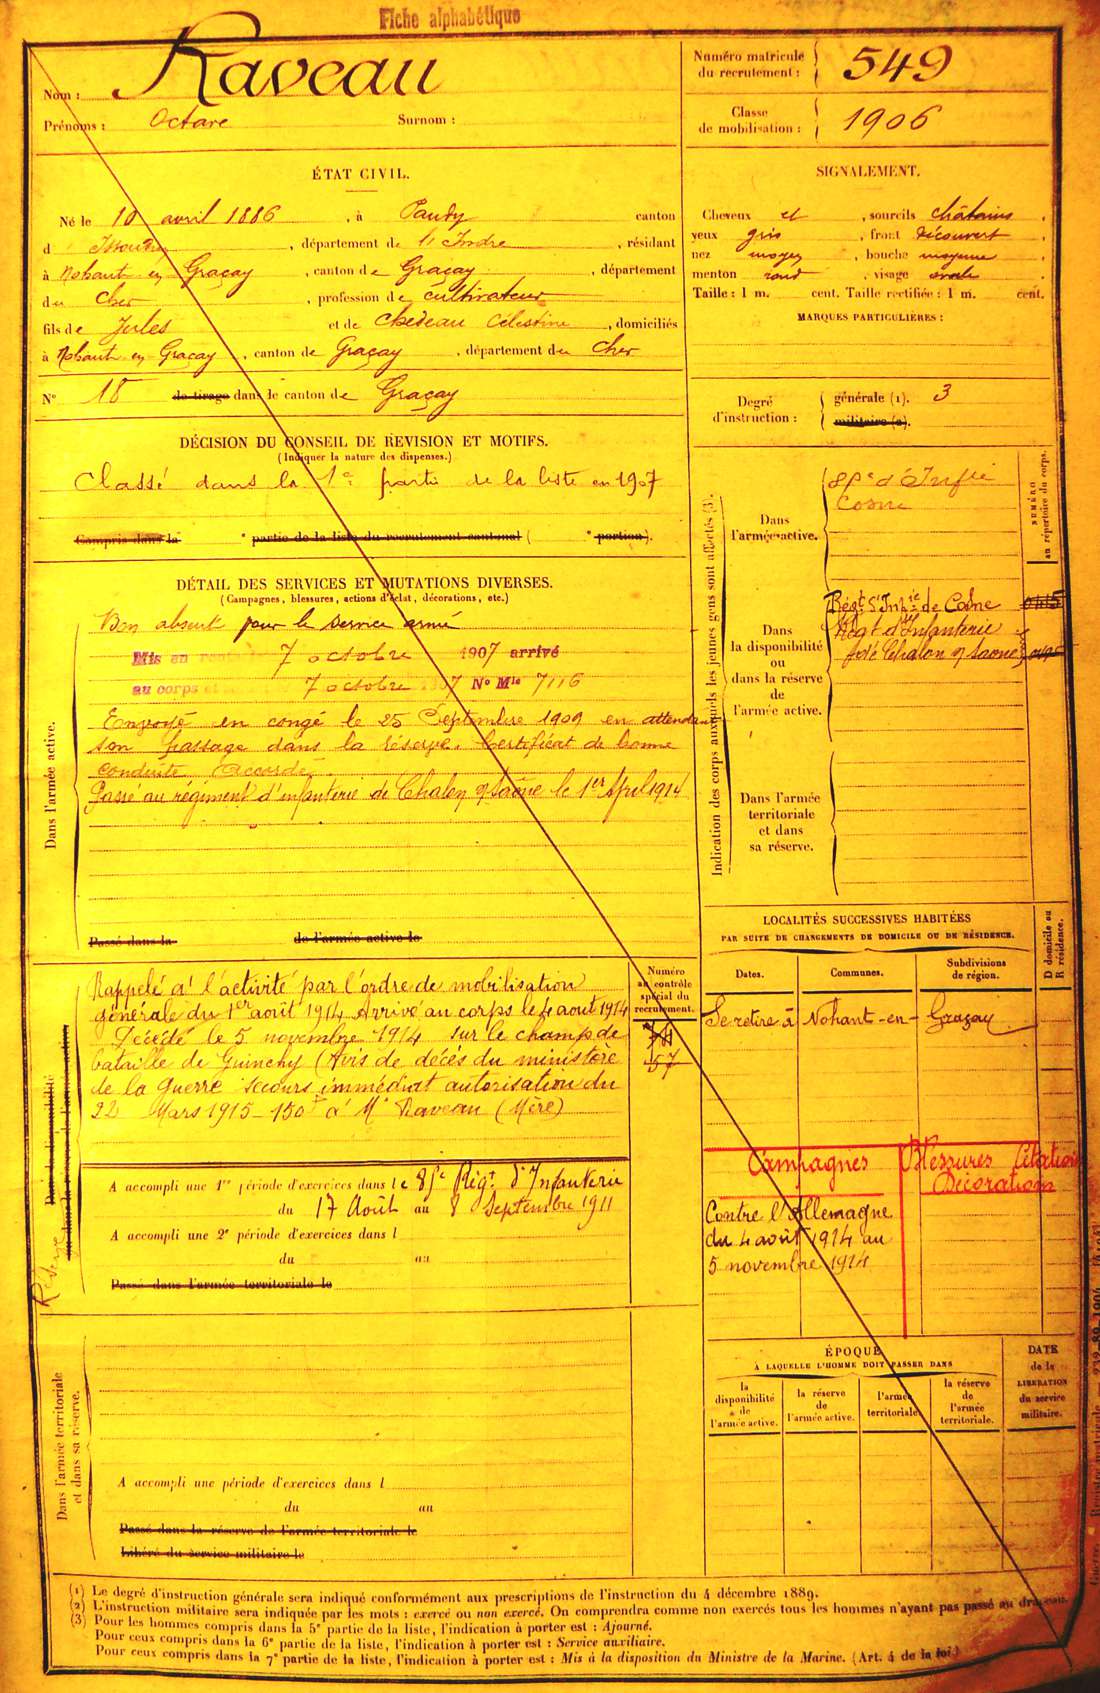 Fiche alphabétique
Nom : Raveau
Prénoms : Octave Surnom :
Numéro matricule du recrutement : 549
Classe de mobilisation : 1906
ÉTAT CIVIL.
Né le 10 avril 1886, à Paudy canton
d' Issoudun, département de l'Indre, résidant
à Nohant en Graçay, canton de Graçay, département
du Cher, profession de cultivateur
fils de Jules et de Chedeau Célestine, domiciliés
à Nohant en Graçay, canton de Graçay, département du Cher
N° 18 de tirage dans le canton de Graçay
SIGNALEMENT.
Cheveux et, sourcils châtains,
yeux gris, front découvert,
nez moyen, bouche moyenne,
menton rond, visage ovale
Taille : 1 m. cent. Taille rectifiée : 1 m. cent.
MARQUES PARTICULIÈRES :
Degré d'instruction :
générale (1). 3
militaire (2).
DÉCISION DU CONSEIL DE REVISION ET MOTIFS.
(Indiquer la nature des dispenses.)
Classé dans la 1re partie de la liste en 1907
Compris dans la e partie de la liste du recrutement cantonal ( e portion).
DÉTAIL DES SERVICES ET MUTATIONS DIVERSES.
(Campagnes, blessures, actions d'éclat, décorations, etc.)
Dans l'armée active.
Bon absent pour le service armé
Mis en route le 7 octobre 1907 arrivé
au corps et 7 octobre 1907 N° Mle 7116
Envoyé en congé le 25 Septembre 1909 en attendant
son passage dans la réserve. Certificat de bonne
conduite Accordé.
Passé au régiment d'infanterie de Chalon s/ Saône le 1er April 1914
Passé dans la de l'armée active le
Indication des corps auxquels les jeunes gens sont affectés (3).
NUMÉRO au répertoire du corps.
Dans l'armée active.
85e d'Infie
Cosne
Dans la disponibilité ou dans la réserve de l'armée active.
Régt d'Infie de Cosne
Régt d'Infanterie
de Chalon s/ Saône
Dans l'armée territoriale et dans sa réserve.
LOCALITÉS SUCCESSIVES HABITÉES
PAR SUITE DE CHANGEMENTS DE DOMICILE OU DE RÉSIDENCE.
D domicile ou R résidence.
Dates. Communes. Subdivisions de région.
Se retire à Nohant-en-Graçay
Dans la disponibilité
ou dans la réserve de l'armée active
Réserve
Numéro au contrôle spécial du recrutement.
57
Rappelé à l'activité par l'ordre de mobilisation
générale du 1er août 1914 Arrivé au corps le 4 août 1914
Décédé le 5 novembre 1914 sur le champ de
bataille de Guinchy (Avis de décès du ministère
de la Guerre secours immédiat autorisation du
22 Mars 1915 - 150f à Me Raveau (Mère)
A accompli une 1re période d'exercices dans le 85e Régt d'Infanterie
du 17 Août au 8 Septembre 1911
A accompli une 2e période d'exercices dans l
du au
Passé dans l'armée territoriale le
Campagnes
Blessures Citations
Décorations
Contre l'Allemagne
du 4 août 1914 au
5 novembre 1914
Dans l'armée territoriale et dans sa réserve.
A accompli une période d'exercices dans l
du au
Passé dans la réserve de l'armée territoriale le
Libéré du service militaire le
ÉPOQUE
À LAQUELLE L'HOMME DOIT PASSER DANS
la disponibilité de l'armée active.
la réserve de l'armée active.
l'armée territoriale.
la réserve de l'armée territoriale.
DATE de la LIBÉRATION du service militaire.
(1) Le degré d'instruction générale sera indiqué conformément aux prescriptions de l'instruction du 4 décembre 1889.
(2) L'instruction militaire sera indiquée par les mots : exercé ou non exercé. On comprendra comme non exercés tous les hommes n'ayant pas passé au drapeau.
(3) Pour les hommes compris dans la 5e partie de la liste, l'indication à porter est : Ajourné.
Pour ceux compris dans la 6e partie de la liste, l'indication à porter est : Service auxiliaire.
Pour ceux compris dans la 7e partie de la liste, l'indication à porter est : Mis à la disposition du Ministre de la Marine. (Art. 4 de la loi.)